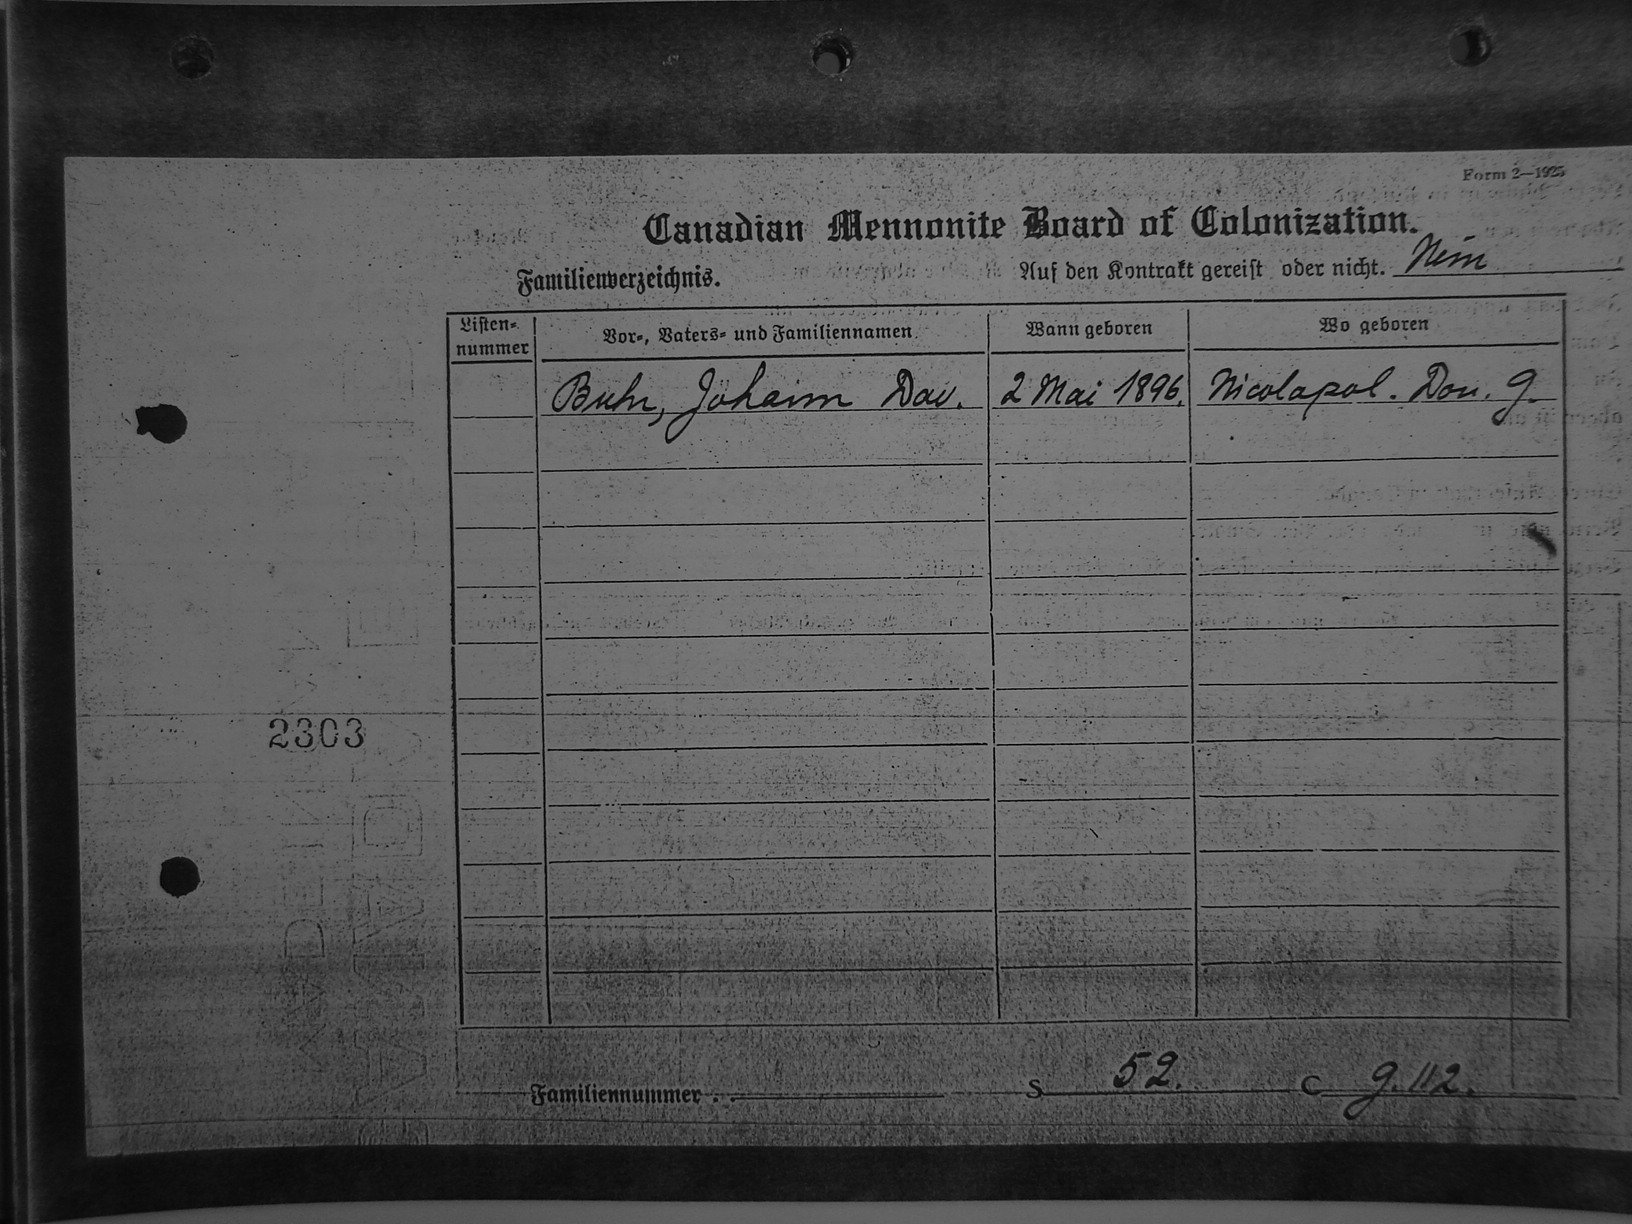 Form 2—1925
Canadian Mennonite Board of Colonization.
Familienverzeichnis. Auf den Kontrakt gereist oder nicht. Nein
Listen-nummer Vor-, Vaters- und Familiennamen Wann geboren Wo geboren
Buhr, Johann Dav. 2 Mai 1896. Nicolapol. Don. G.
2303
Familiennummer . . S 52. C G.112.